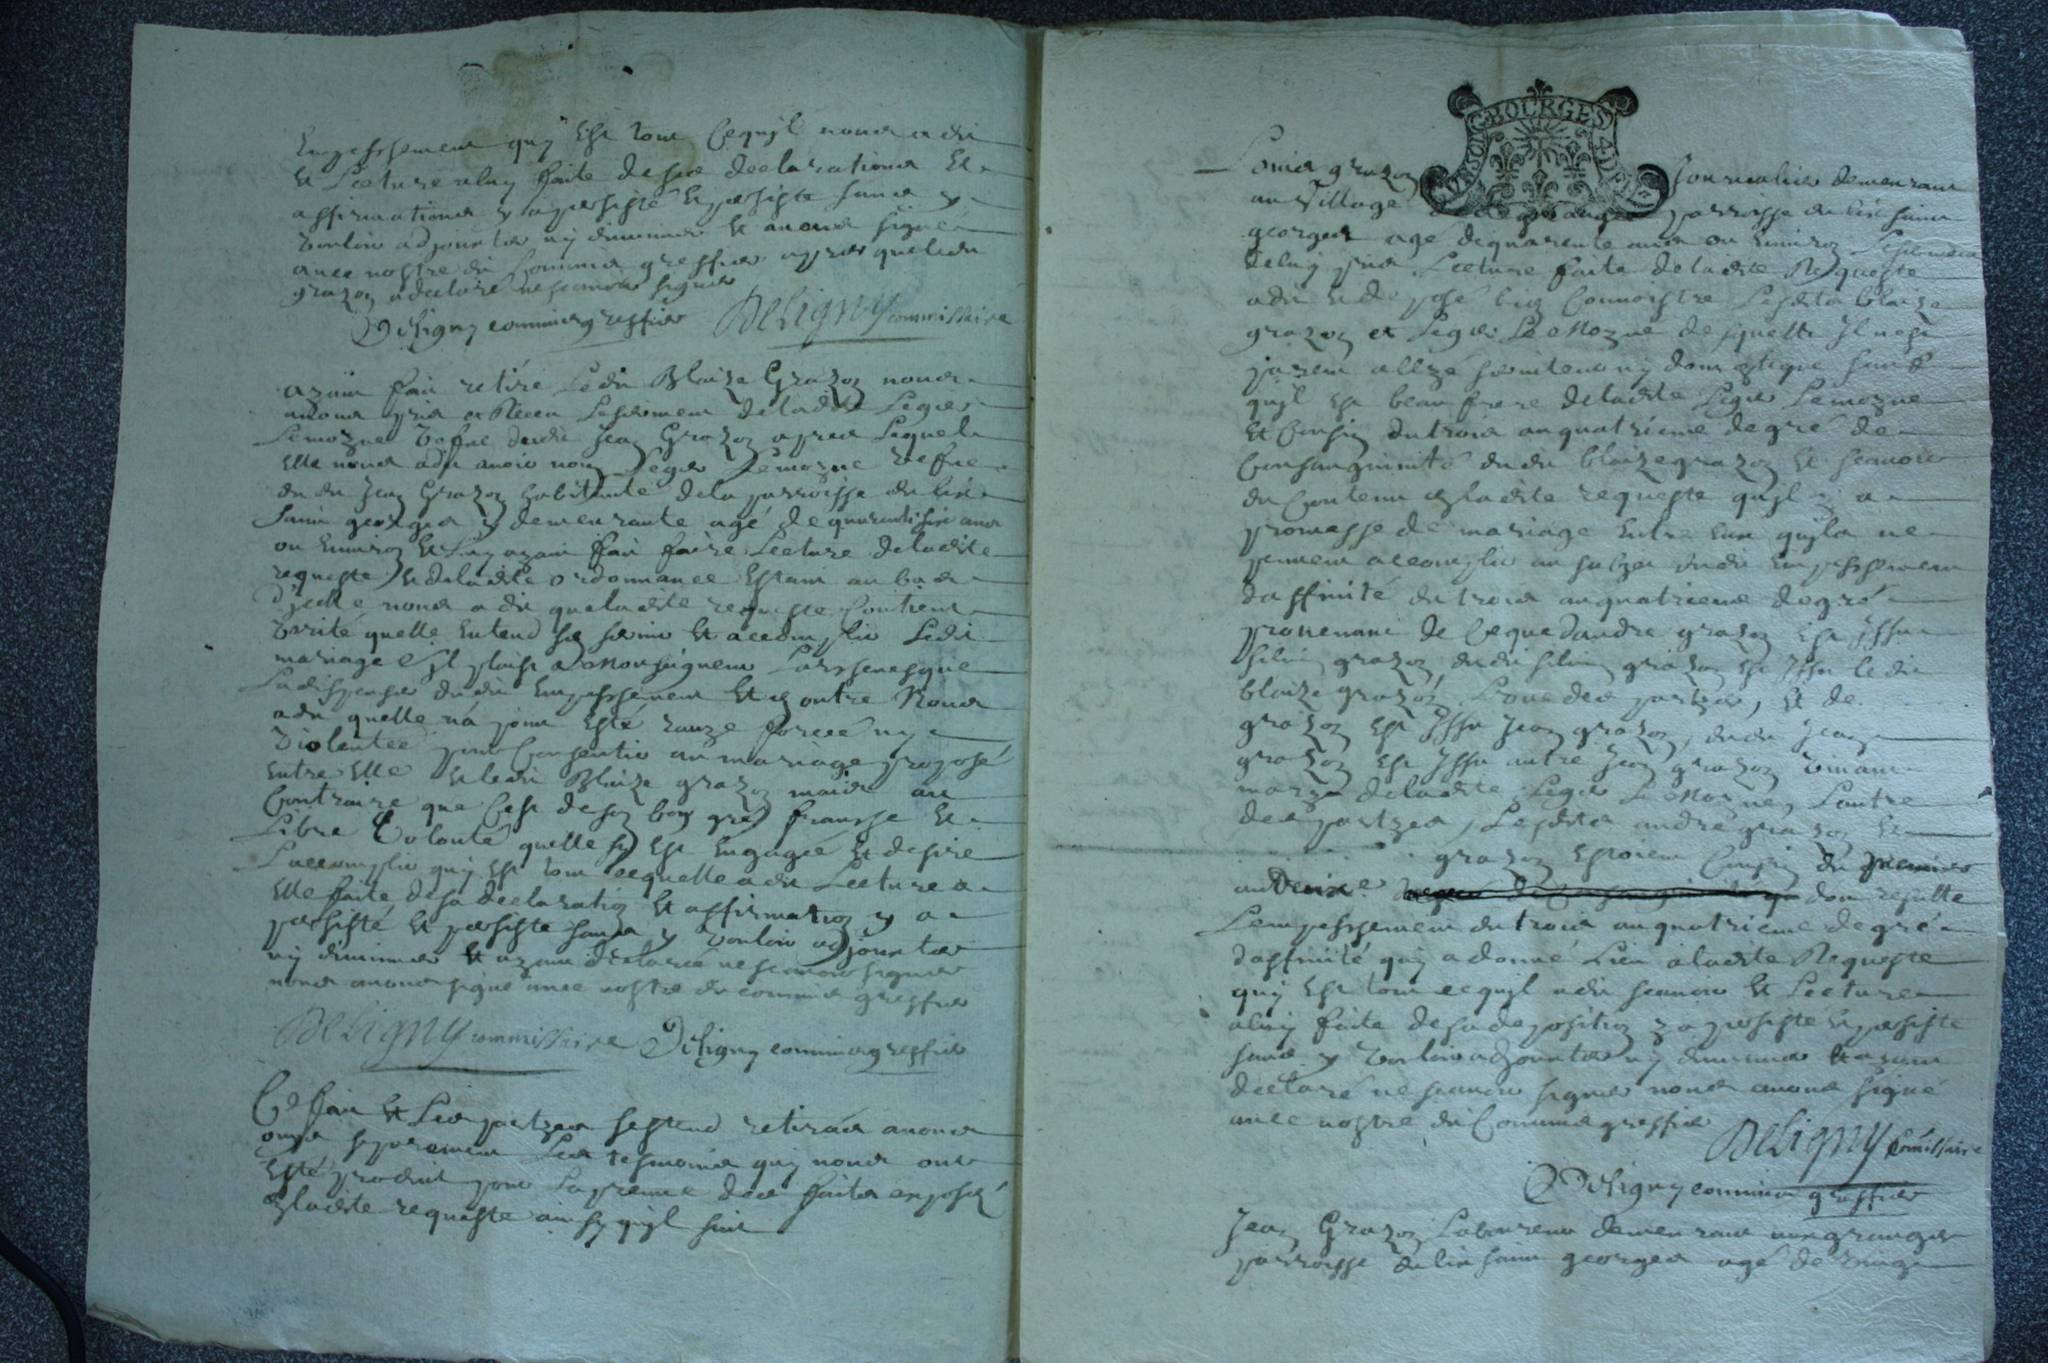 Empeschement quy Est tout Cequjl nous a dit
Et Lecture aluy faite de ses declarations Et
affirmations y a persisté Et persiste sans y
vouloir adjouster ny diminuer Et avons signé
avec nostre dit Commis greffier appres queledit
grazon a declaré ne scavoir signer
Deligny commis greffier Deligny commissaire
ayant fait retiré Ledit Blaize Grazon nous
avons pris et Receu Leserment deladite Leger
Lemozne vefue dudit Jean Grazon apres Lequel
Elle nous a dit avoir nom Leger Lemozne vefue
du dit Jean Grazon habitante dela parroisse du lis
saint georges y demeurante agé de quarente six ans
ou Environ Et Luy ayant fait faire Lecture deladite
requeste Et deladite ordonnance Estant au bas
d'jcelle nous a dit queladite requeste Contient
verité quelle Entend se servir Et accomplir Ledit
mariage s'jl plaist a Monseigneur Larchevesque
La dispenser du dit Empeschement Et en outre Nous
a dit quelle n'a point Esté forcée ny
violentée pour Consentir au mariage proposé
Entre Elle Et ledit Blaize grazon mais au
Contraire que Cest de son bon gré franche Et
Libre volonté quelle sy Est Engagée Et desire
Laccomplir quy Est tout cequelle a dit Lecture a
Elle faite de sa declaration Et affirmation y a
persisté Et persiste sans y vouloir adjouster
ny diminuer Et ayant declaré ne scavoir signer
nous avons signé avec nostre dit commis greffier
Deligny commissaire Deligny commis greffier
Ce fait Et Les partyes sestend retirées avons
ouys separement Les tesmoins quy nous ont
Esté produit pour La preuve des faits exposé
En ladite requeste ainsy qujl suit
GN SON C BOURGES 4 DEN
Louis grazon Journalier demeurant
au village parroisse du lis saint
georges agé de quarente ans ou Environ Leserment
deluy pris Lecture faite deladite Requeste
a dit Et deposé bien Connoistre Lesdits blaize
grazon et Leger Le Mozne desquelle Jl nest
parent allyé serviteur ny domestique sauf
qujl Est beau frere deladite Leger Lemozne
Et Cousin du trois au quatriéme degré de
Consanguinité du dit blaize grazon Et scavoir
du Contenu En ladite requeste qujl y a
promesse de mariage Entre Eux qujls ne
peuvent accomplir au sujet dudit Empeschement
daffinité du trois au quatrieme degré
provenant de Ceque dandré grazon Est Jssu
silvin grazon, du dit silvin grazon Est Jssu le dit
blaize grazon, L'une des partyes, Et de
grazon Est Jssu Jean grazon, du dit Jean
grazon Est Jssu autre Jean grazon vivant
mary deladite Leger Le Mozne, Lautre
des partyes, Lesdits andré grazon Et
grazon Estoient Cousin du premier
au deuxe dont resulte
Lempeschement du trois au quatrieme degré
daffinité quy a donné Lieu a ladite Requeste
quy Est tout cequjl a dit scavoir Et Lecture
aluy faite de sa deposition y a persisté Et persiste
sans y vouloir adjouster ny diminuer Et ayant
declaré ne scavoir signer nous avons signé
avec nostre dit Commis greffier
Deligny Commissaire
Deligny commis greffier
Jean Grazon Laboureur demeurant aux granges
parroisse du lis saint georges agé de vingt